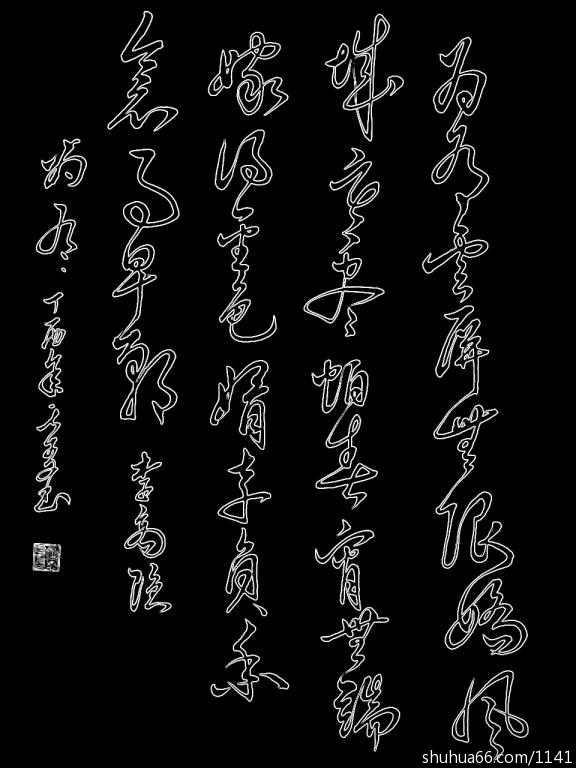 为有雲屏無限嬌凤
城寒尽怕春宵無端
嫁得金龟婿辜負香
衾事早朝 李商隐
为有 丁酉年
shuhua66.com/1141